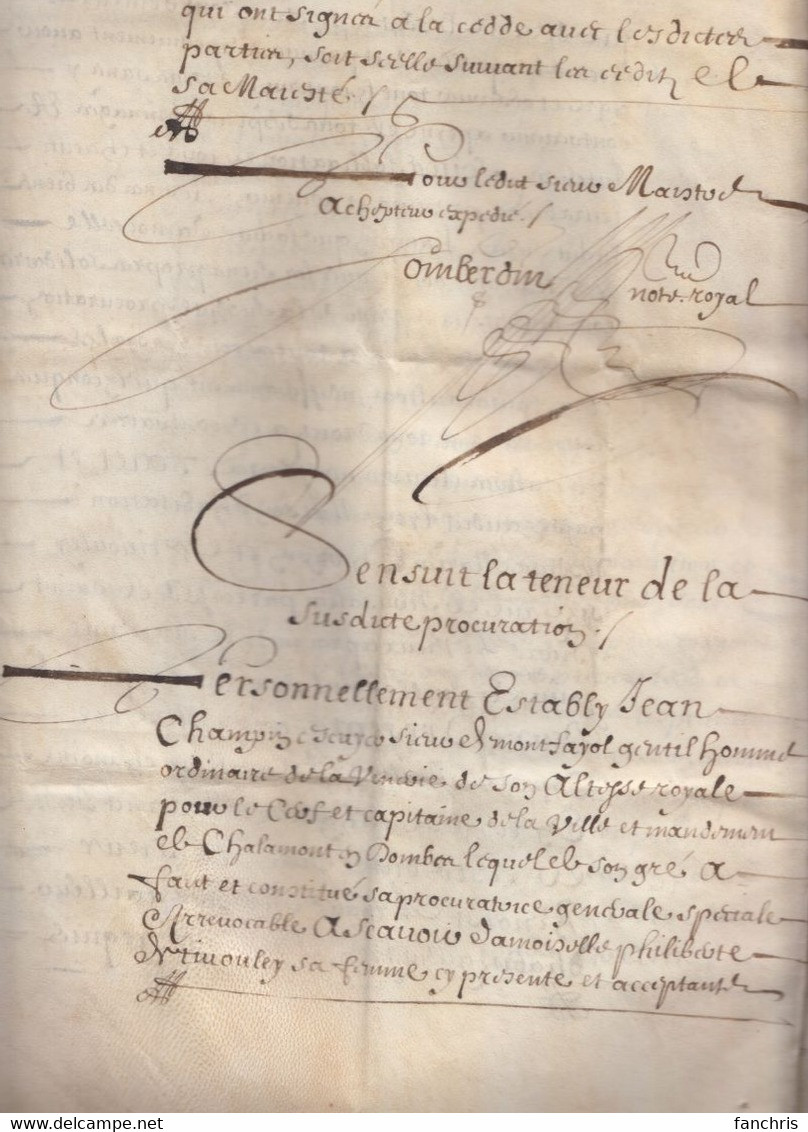 qui ont signéz a la cedde avec lesdictes
parties, soit scelle suivant les editz de
sa Maiesté /
Pour ledit sieur Maistre
achepteur expedié /
Comberdin
note. royal
Sensuit la teneur de la
susdicte procuration /
Personnellement Estably Jean
Champin escuyer sieur de montfayol gentil homme
ordinaire de la Venerie de son Altesse royale
pour le Cerf et capitaine de la Ville et mandement
de Chalamont en Dombes lequel de son gré a
faict et constitué sa procuratrice generale speciale
et irrevocable Ascavoir damoiselle philiberte
sa femme cy presente et acceptante
fanchris